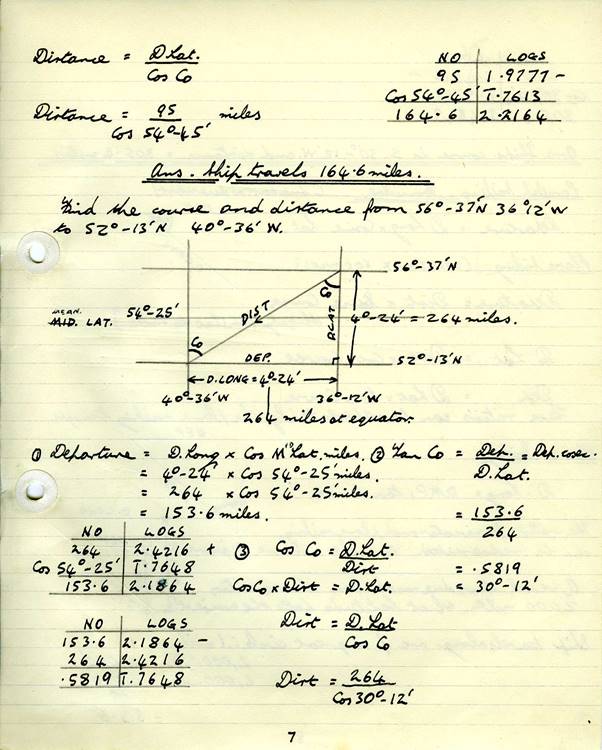 Distance = D Lat.
Cos Co
NO LOGS
95 1.9777 -
Cos 54°-45' T.7613
164.6 2.2164
Distance = 95 miles
Cos 54°-45'
Ans. Ship travels 164.6 miles.
Find the course and distance from 56°-37'N 36°12'W
to 52°-13'N 40°-36'W.
56°-37'N
MEAN.
MID. LAT. 54°-25'
DIST
Co
D LAT
4°-24' = 264 miles.
Co
DEP.
52°-13'N
D.LONG = 4°-24'
40°-36'W 36°-12'W
264 miles at equator.
① Departure = D.Long x Cos Mn Lat. miles.
= 4°-24' x Cos 54°-25' miles.
= 264 x Cos 54°-25' miles.
= 153.6 miles.
② Tan Co = Dep. = Dep. cosec.
D.Lat.
= 153.6
264
= .5819
= 30°-12'
NO LOGS
264 2.4216 +
Cos 54°-25' T.7648
153.6 2.1864
③ Cos Co = D.Lat.
Dist
Cos Co x Dist = D.Lat.
Dist = D.Lat
Cos Co
Dist = 264
Cos 30°-12'
NO LOGS
153.6 2.1864 -
264 2.4216
.5819 T.7648
7